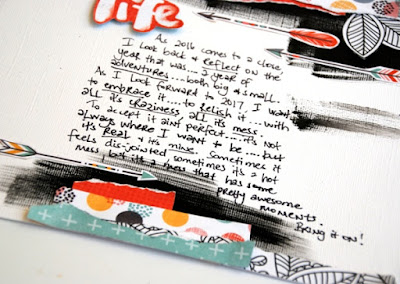 life
As 2016 comes to a close
I look back & reflect on the
year that was... a year of
adventures... both big & small.
As I look forward to 2017, I want
to embrace it.... to relish it.... with
all its craziness all its mess.
To accept it aint perfect.... it's not
always where I want to be... but
it's real & it's mine. Sometimes it
feels dis-jointed sometimes it's a hot
mess, but it's a mess that has some
pretty awesome
moments.
Bring it on!